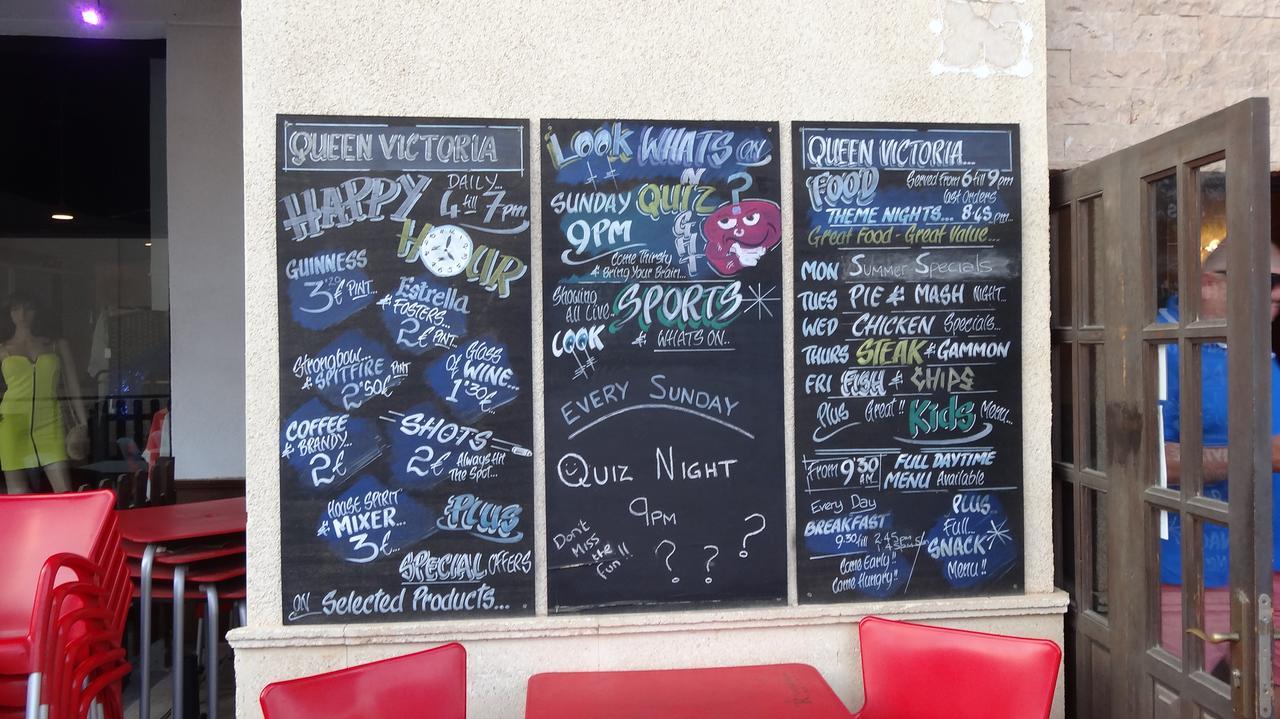 QUEEN VICTORIA
HAPPY DAILY...
4 till 7pm
HOUR
GUINNESS
3 € PINT...
Estrella
& FOSTERS...
2€ PINT...
Strongbow...
& SPITFIRE PINT
2'50€
Glass
of WINE...
1'30€...
COFFEE
& BRANDY...
2€
SHOTS
2€ Always hit
the Spot...
HOUSE SPIRIT
& MIXER...
3€...
Plus
SPECIAL OFFERS
ON Selected Products...
LOOK WHATS ON
SUNDAY QUIZ
NIGHT
9PM
Come Thirsty
& Bring Your Brain...
Showing
All Live..
SPORTS
LOOK & WHATS ON..
EVERY SUNDAY
QUIZ NIGHT
9PM
Don't
Miss
the
fun!!
? ? ?
QUEEN VICTORIA....
FOOD Served From 6 till 9pm
Last Orders
THEME NIGHTS... 8:45 pm...
Great Food - Great Value...
MON Summer Specials
TUES PIE & MASH NIGHT...
WED CHICKEN Specials...
THURS STEAK & GAMMON
FRI FISH & CHIPS
Plus Great!! Kids Menu...
From 9'30 AM FULL DAYTIME
MENU Available
Every Day
BREAKFAST
9.30 till
Come Early!!
Come Hungry!!
PLUS
Full...
SNACK
Menu!!